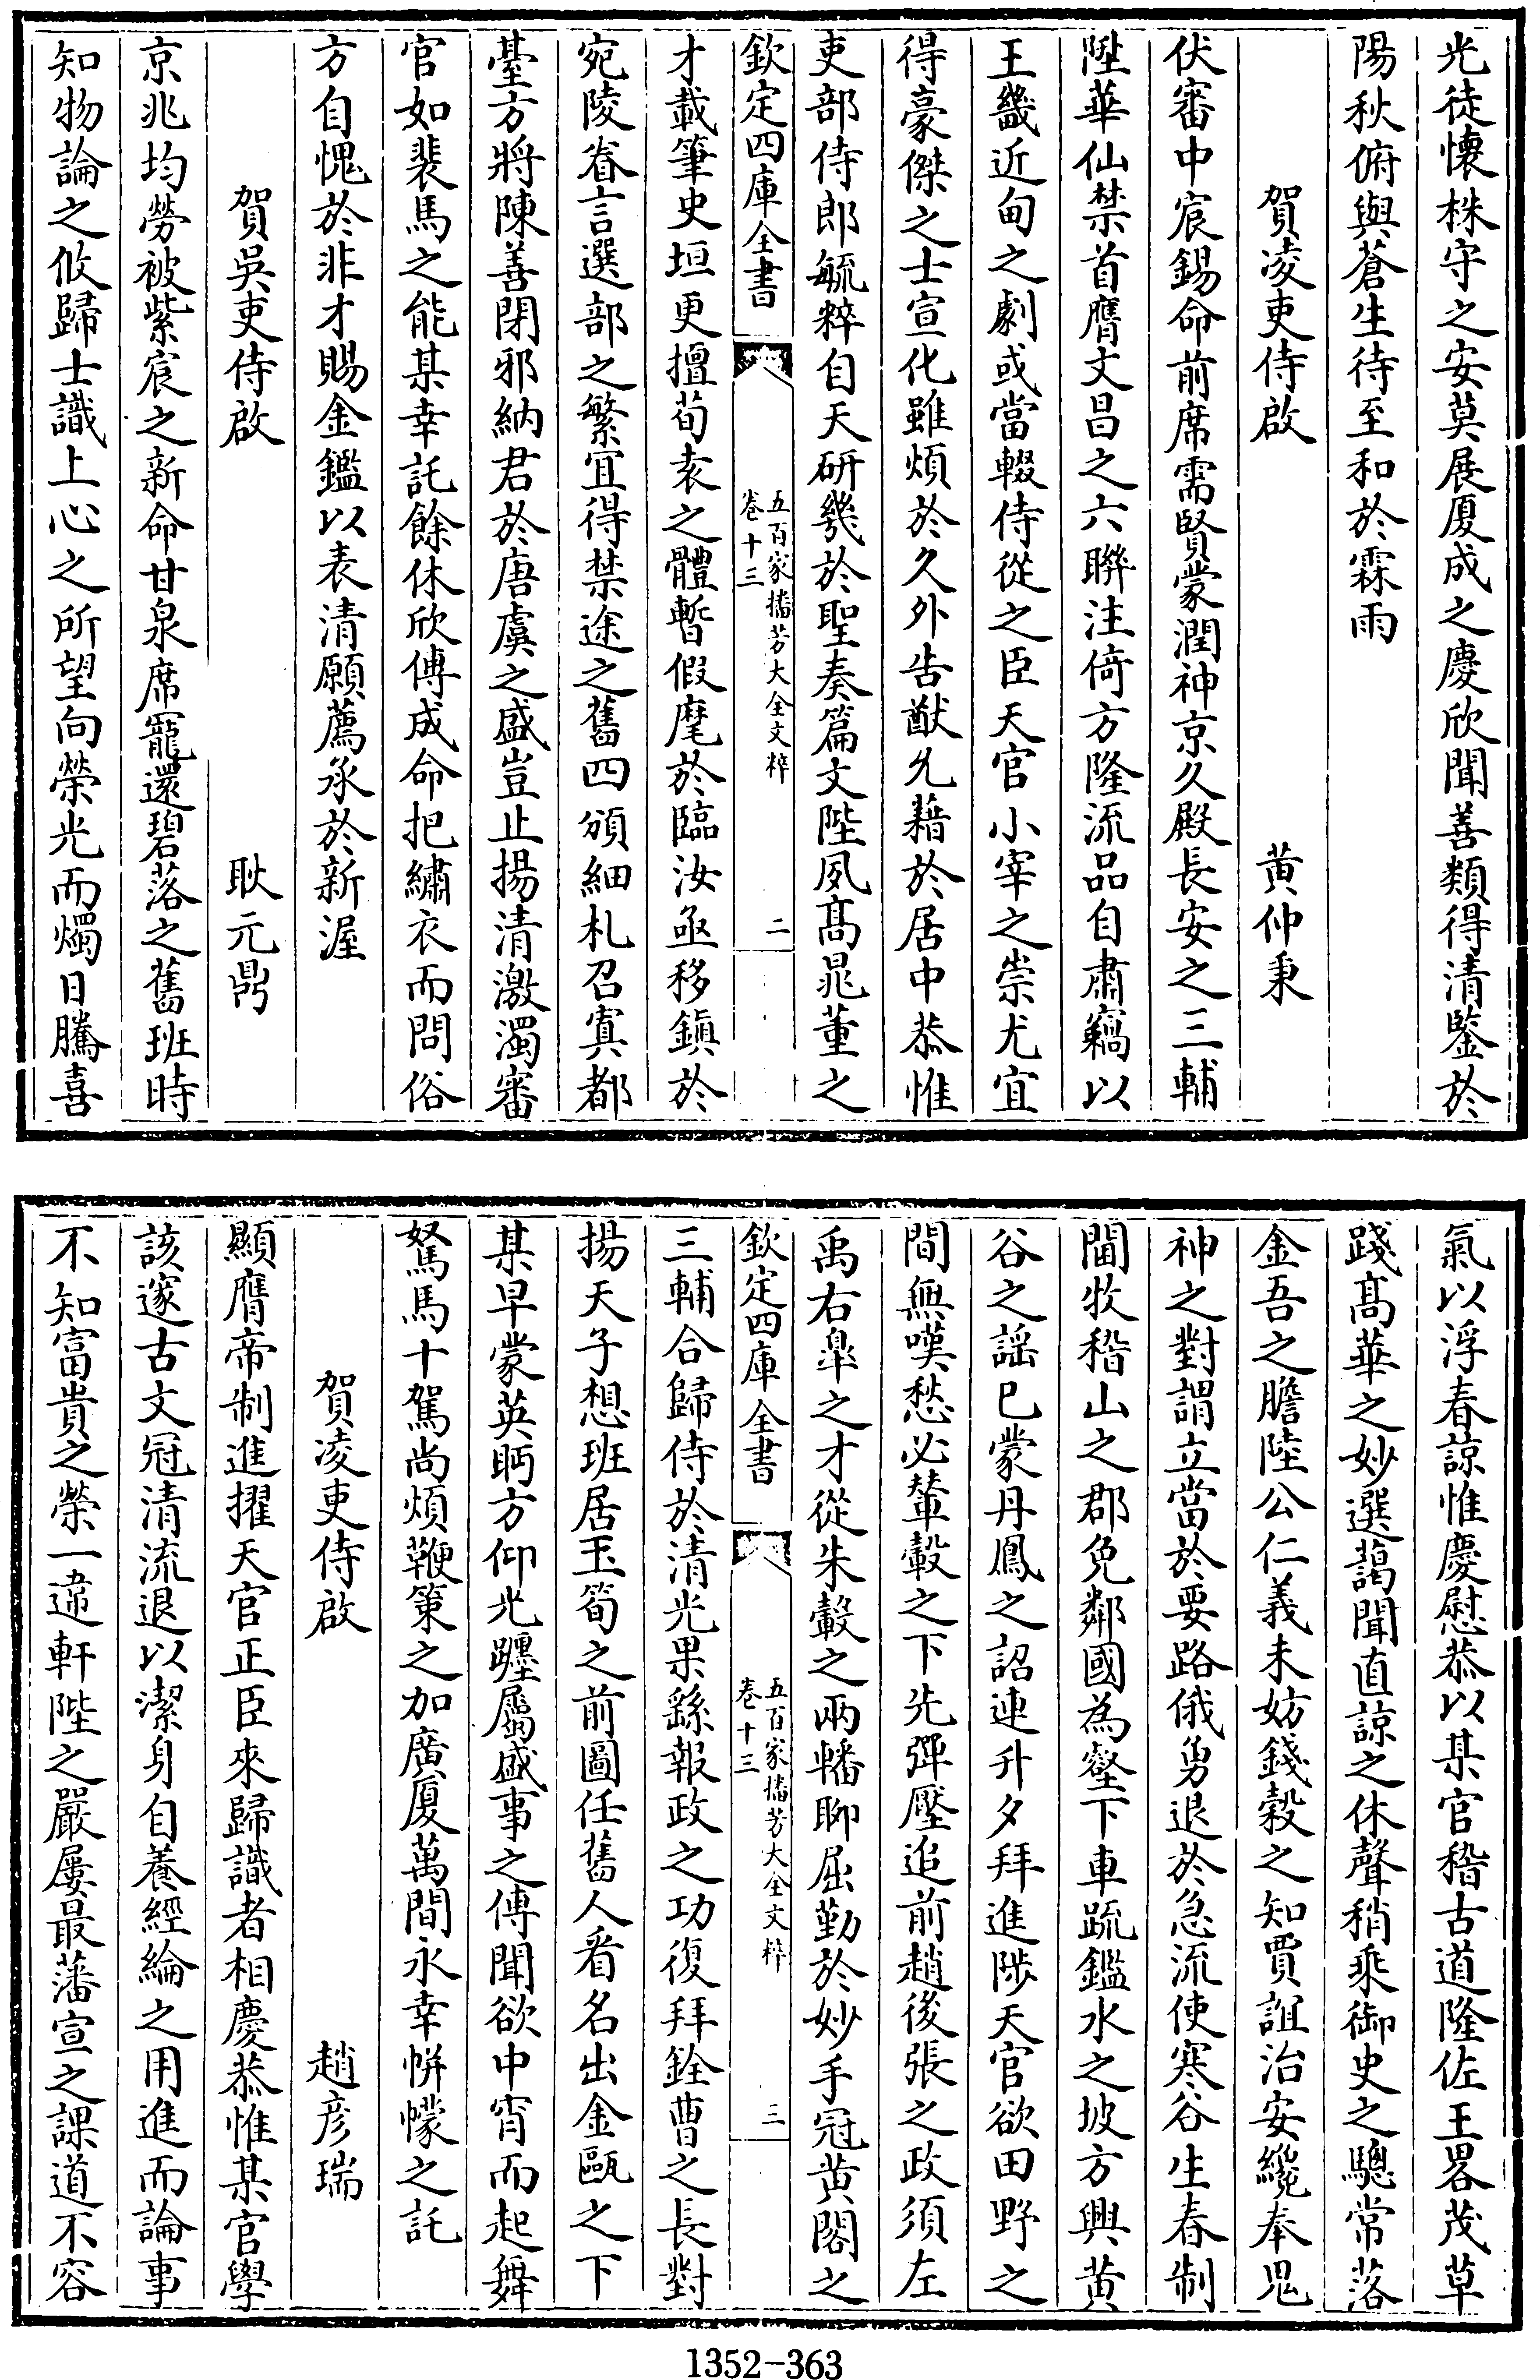 光徒懷株守之安莫展厦成之慶欣聞善類得清鍳於
陽秋俯與蒼生待至和於霖雨
賀凌吏侍啟　黄仲秉
伏審中宸錫命前席需賢蒙潤神京久殿長安之三輔
陞華仙禁首膺文昌之六聯注倚方隆流品自肅竊以
王畿近甸之劇或當輟侍從之臣天官小宰之崇尤宜
得豪傑之士宣化雖煩於久外告猷允藉於居中恭惟
吏部侍郎毓粹自天研幾於聖奏篇文陛夙髙晁董之
欽定四庫全書　五百家播芳大全文粹　卷十三　二
才載筆史垣更擅荀袁之體暫假麾於臨汝亟移鎮於
宛陵眷言選部之繁宜得禁途之舊四頒細札召寘都
臺方將陳善閉邪納君於唐虞之盛豈止揚清激濁審
官如裴馬之能某幸託餘休欣傳成命把繡衣而問俗
方自愧於非才賜金鑑以表清願薦承於新渥
賀吳吏侍啟　耿元鼎
京兆均勞被紫宸之新命甘泉席寵還碧落之舊班時
知物論之攸歸士識上心之所望向榮光而燭日騰喜
氣以浮春諒惟慶慰恭以某官稽古道隆佐王畧茂草
踐髙華之妙選藹聞直諒之休聲稍乘御史之驄常落
金吾之膽陸公仁義未妨錢穀之知賈誼治安纔奉鬼
神之對謂立當於要路俄勇退於急流使寒谷生春制
閫牧稽山之郡免鄰國為壑下車疏鑑水之坡方興黄
谷之謡已蒙丹鳳之詔連升夕拜進陟天官欲田野之
間無嘆愁必輦轂之下先彈壓追前趙後張之政須左
禹右臯之才從朱轂之兩轓聊屈勤於妙手冠黄閣之
欽定四庫全書　五百家播芳大全文粹　卷十三　三
三輔合歸侍於清光果繇報政之功復拜銓曹之長對
揚天子想班居玉筍之前圖任舊人看名出金甌之下
某早蒙英眄方仰光躔屬盛事之傳聞欲中宵而起舞
駑馬十駕尚煩鞭策之加廣厦萬間永幸帡幪之託
賀凌吏侍啟　趙彦瑞
顯膺帝制進擢天官正臣來歸識者相慶恭惟某官學
該邃古文冠清流退以潔身自養經綸之用進而論事
不知富貴之榮一違軒陛之嚴屢最藩宣之課道不容
1352-363